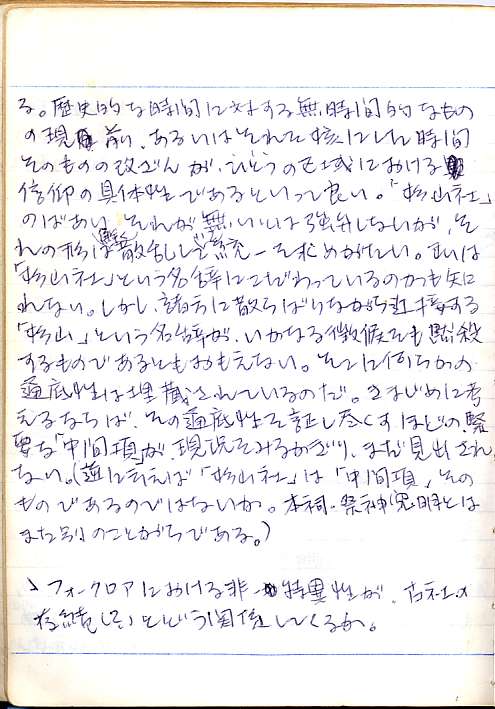 る。歴史的な時間に対する無時間的なもの
の現前、あるいはそれを核にした時間
そのものの改ざんが、ひとつの区域における
信仰の具体性であるといって良い。「杉山社」
のばあい、それが無いとは強弁しないが、そ
れの形は散乱して統一を求めがたい。或いは
「杉山社」という名辞にこだわっているのかも知
れない。しかし、諸方に散らばりながら近接する
「杉山」という名辞が、いかなる徴候をも黙殺
するものであるともおもえない。そこに何らかの
通底性は埋蔵されているのだ。きまじめに考
えるならば、その通底性を証し尽くすほどの緊
要な「中間項」が、現況をみるかぎり、まだ見出され
ない。(逆に言えば「杉山社」は「中間項」その
ものであるのではないか。本祠・祭神究明とは
また別のことがらである。)
、フォークロアにおける非特異性が、古社の
存続(と)どういう関係してくるか。